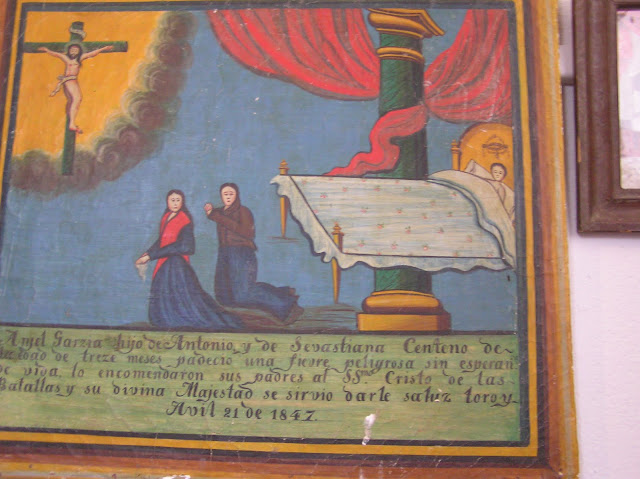 Anjel Garzia hijo de Antonio, y de Sevastiana Centeno de
edad de treze meses padecio una fievre peligrosa sin esperan
de viva, lo encomendaron sus padres al SSmo Cristo de las
Batallas, y su divina Majestad se sirvio darle saluz toroy
Avil 21 de 1847.